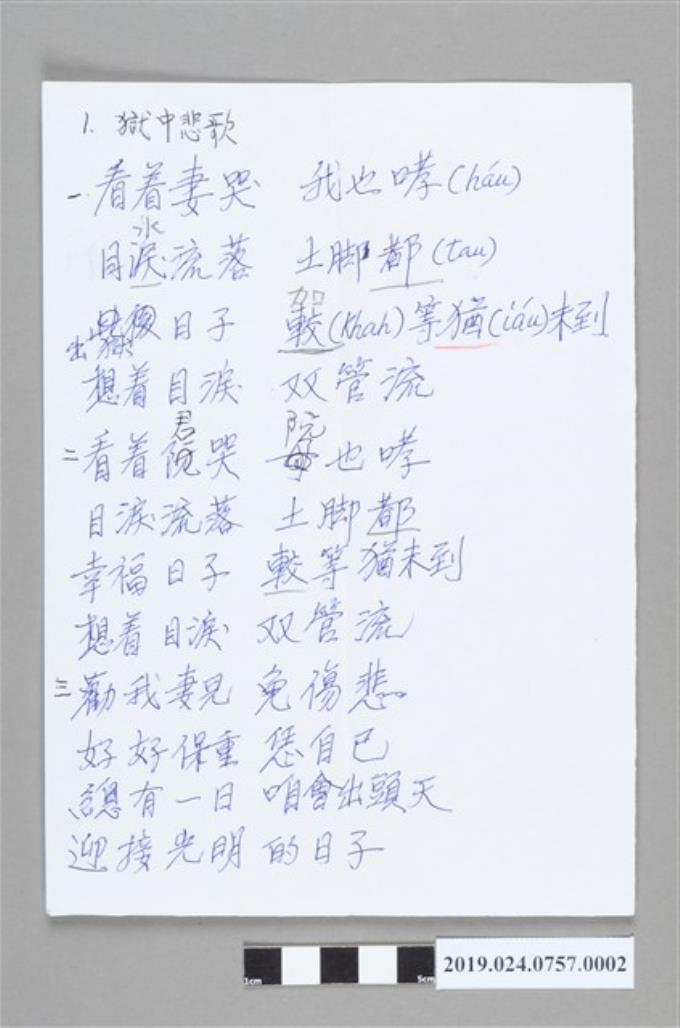 1. 獄中悲歌
一 看着妻哭 我也哮(háu)
水
目淚流落 土脚都(tau)
加
出獄後日子 較(khah)等猶(iáu)未到
想着目淚 双管流
君 阮
二 看着阮哭 爷也哮
目淚流落 土脚都
幸福日子 較等猶未到
想着目淚 双管流
三 勸我妻兒 免傷悲
好好保重 恁自己
總有一日 咱會出頭天
迎接光明 的日子
1cm 5cm
2019.024.0757.0002